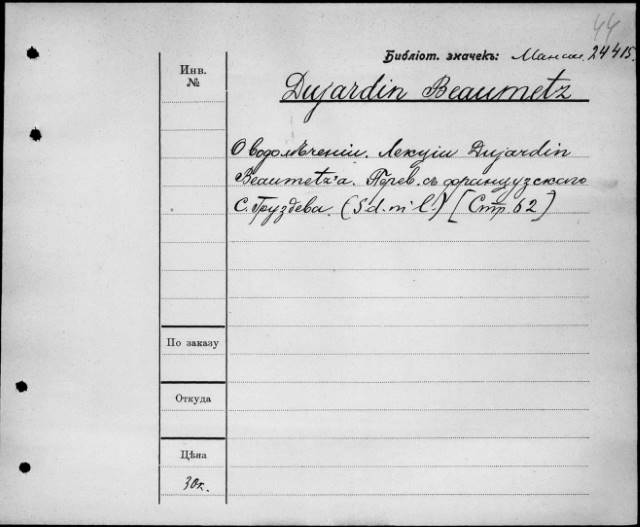 44
Библіот. значекъ: 24415.
Инв.
№
Dujardin Beaumetz
О водолѣченіи. Лекціи Dujardin
Beaumetz'a. Перев. съ французскаго
С. Груздева. (S.d. ni l.) [Стр. 62]
По заказу
Откуда
Цѣна
30к.